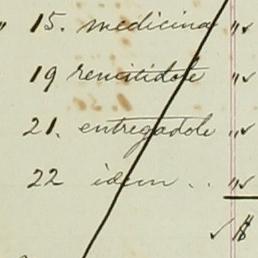 " 15. medicina "
19 remitidole "
21. entregadole "
22 idem .. "
$